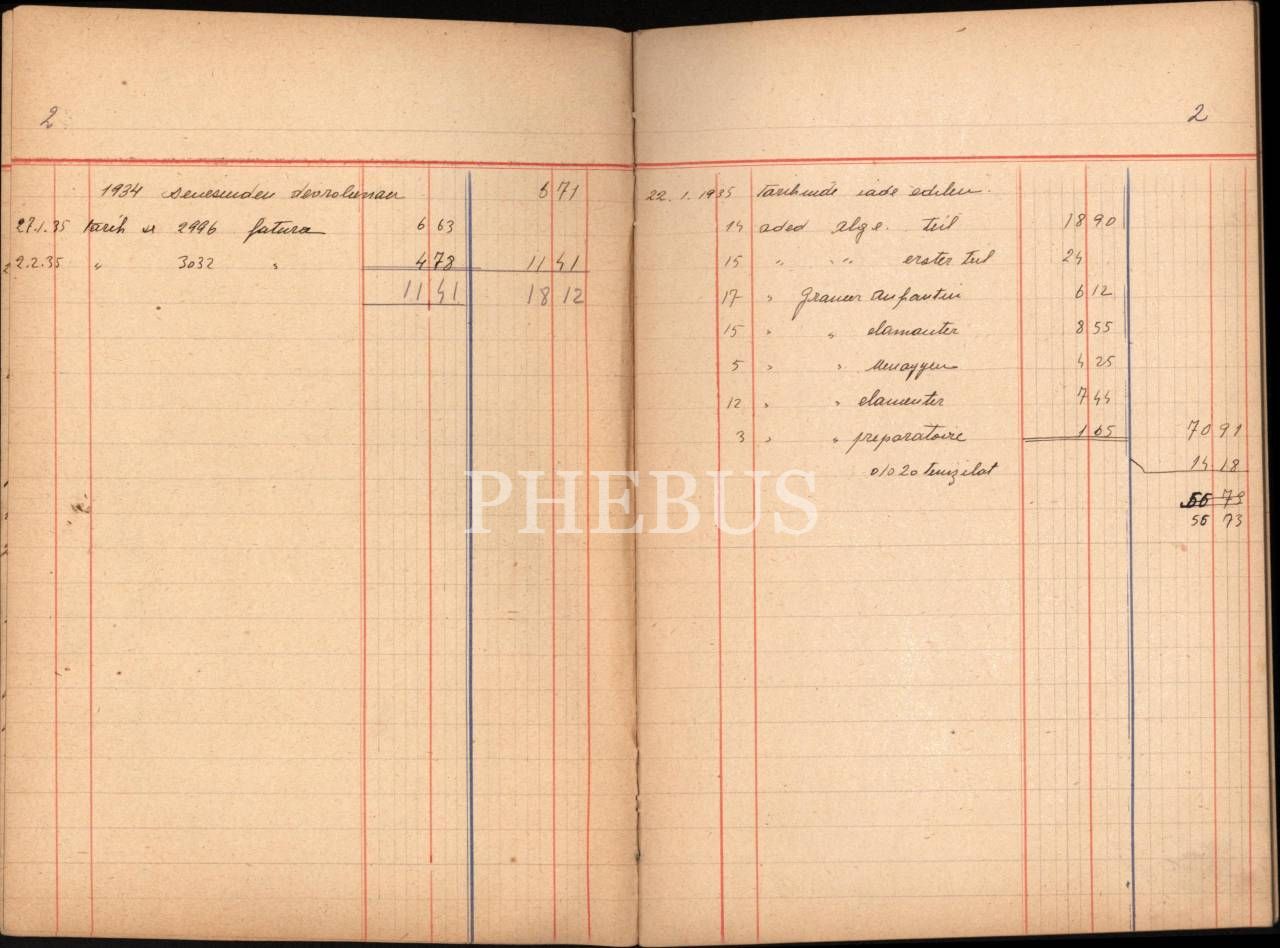 2
1934 senesinden devrolunan 6 71
27.1.35 tarih 2996 fatura 6 63
2.2.35 " 3032 " 4 78 11 41
11 41 18 12
2
22.1.1935 tarihinde iade edilen.
14 aded Alge. teil 18 90
15 " " " erster teil 24
17 " Gramer anfantin 6 12
15 " " elamanter 8 55
5 " " 4 25
12 " " elamenter 7 44
3 " " preparatoire 1 65 70 91
0/0 20 tenzilat 14 18
56 73
56 73
PHEBUS